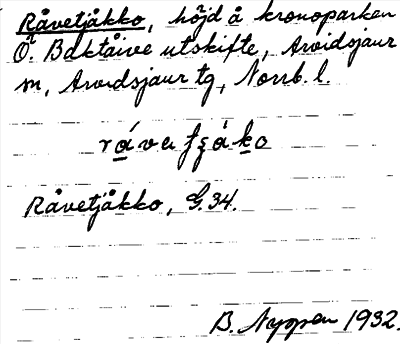 Råvetjåkko, höjd å kronoparken
Ö. Baktåive utskifte, Arvidsjaur
sn, Arvidsjaur tg, Norrb. l.
Råvetjåkko, G.34.
B. Nyman 1932.